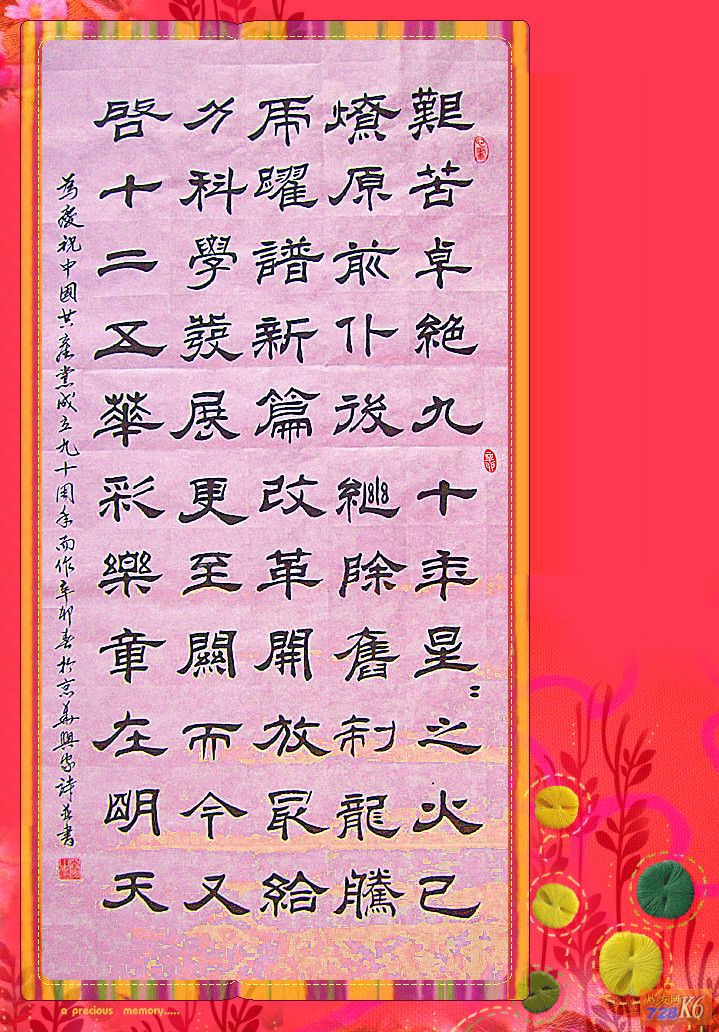 艱苦卓絕九十年星〻之火已
燎原前仆後繼除舊制龍騰
虎躍譜新篇改革開放最給
力科學發展更至關而今又
启十二五華彩樂章在明天
為慶祝中國共產黨成立九十周年而作辛卯春於京華興家詩並書
辛卯
a precious memory.....
战友网
728 K6